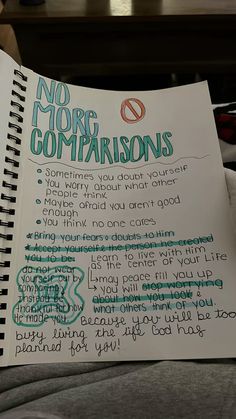 NO
MORE
COMPARISONS
• Sometimes you doubt yourself
• You worry about what other
people think
• Maybe afraid you aren't good
enough
• You think no one cares
*Bring your fears & doubts to Him
*Accept yourself & the person he created
you to be
do not wear
yourself out
comparing
instead be
thankful for how
He made you
Learn to live with Him
as the center of your Life
→ may peace fill you up
→ you will stop worrying
about how you look &
what others think of you.
Because you will be too
busy living the life God has
planned for you!